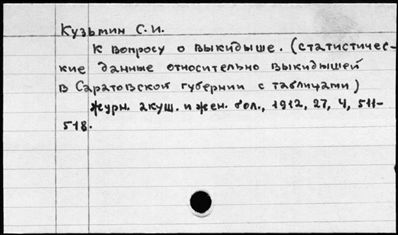 Кузьмин С. И.
К вопросу о выкидыше. (статистичес-
кие данные относительно выкидышей
в Саратовской губернии с таблицами)
журн. акуш. и жен. бол., 1912, 27, 4, 511-
518.